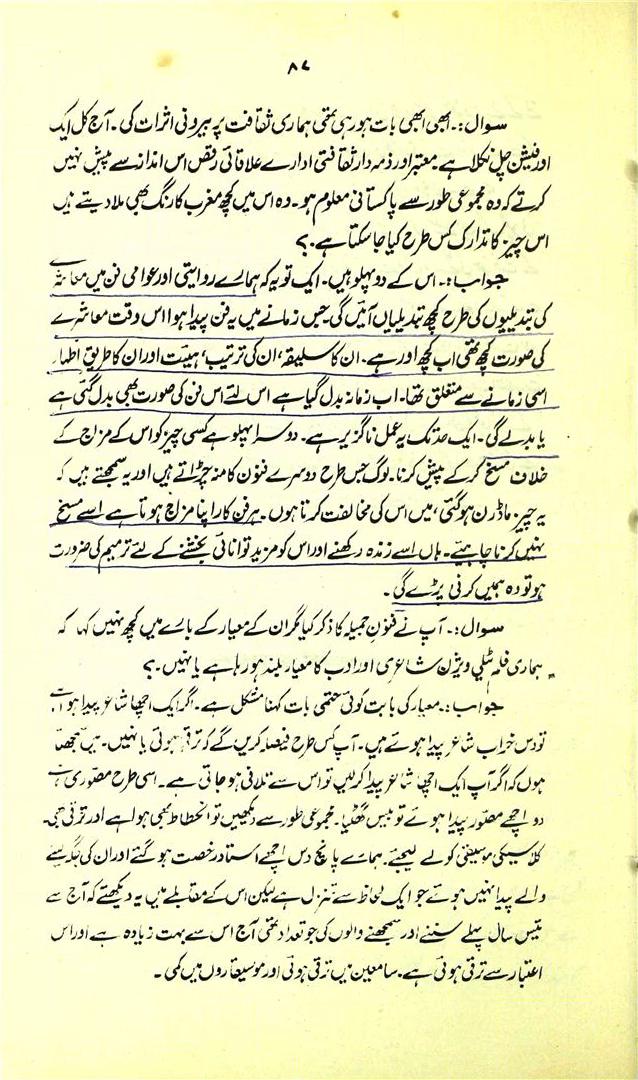 ۸۷
سوال :۔ ابھی ابھی بات ہو رہی تھی ہماری ثقافت پر بیرونی اثرات کی ۔ آج کل ایک
اور فیشن چل نکلا ہے ۔ معتبر اور ذمہ دار ثقافتی ادارے علاقائی رقص اس انداز سے پیش نہیں
کرتے کہ وہ مجموعی طور سے پاکستانی معلوم ہو ۔ وہ اس میں کچھ مغرب کا رنگ بھی ملا دیتے ہیں
اس چیز کا تدارک کس طرح کیا جا سکتا ہے ۔ ؟
جواب :۔ اس کے دو پہلو ہیں ۔ ایک تو یہ کہ ہمارے روایتی اور عوامی فن میں معاشرے
کی تبدیلیوں کی طرح کچھ تبدیلیاں آئیں گی ۔ جس زمانے میں یہ فن پیدا ہوا اس وقت معاشرے
کی صورت کچھ تھی اب کچھ اور ہے ۔ ان کا سلیقہ ، ان کی ترتیب ، ہیئت اور ان کا طریق اظہار
اسی زمانے سے متعلق تھا ۔ اب زمانہ بدل گیا ہے اس لئے اس فن کی صورت بھی بدل گئی ہے
یا بدلے گی ۔ ایک حد تک یہ عمل ناگزیر ہے ۔ دوسرا پہلو ہے کسی چیز کو اس کے مزاج کے
خلاف مسخ کر کے پیش کرنا ۔ لوگ جس طرح دوسرے فنون کا منہ چڑاتے ہیں اور یہ سمجھتے ہیں کہ
یہ چیز ماڈرن ہو گئی ، میں اس کی مخالفت کرتا ہوں ۔ ہر فن کا را اپنا مزاج ہوتا ہے اسے مسخ
نہیں کرنا چاہیئے ۔ ہاں اسے زندہ رکھنے اور اس کو مزید توانائی بخشنے کے لئے ترمیم کی ضرورت
ہو تو وہ ہمیں کرنی پڑے گی ۔
سوال :۔ آپ نے فنون جمیلہ کا ذکر کیا مگر ان کے معیار کے بارے میں کچھ نہیں کہا کہ
ہماری فلم ٹیلی ویژن شاعری اور ادب کا معیار بلند ہو رہا ہے یا نہیں ۔ ؟
جواب :۔ معیار کی بابت کوئی حتمی بات کہنا مشکل ہے ۔ اگر ایک اچھا شاعر پیدا ہوتا ہے
تو دس خراب شاعر پیدا ہوتے ہیں ۔ آپ کس طرح فیصلہ کریں گے کہ ترقی ہوئی یا نہیں ۔ میں سمجھتا
ہوں کہ اگر آپ ایک اچھا شاعر پیدا کر لیں تو اس سے تلافی ہو جاتی ہے ۔ اسی طرح مصوری ہے
دو اچھے مصور پیدا ہوئے تو بیس گھٹیا ۔ مجموعی طور سے دیکھیں تو انحطاط بھی ہوا ہے اور ترقی بھی ۔
کلاسیکی موسیقی کو لے لیجئے ۔ ہمارے پانچ دس اچھے استاد رخصت ہو گئے اور ان کی جگہ لینے
والے پیدا نہیں ہوئے جو ایک لحاظ سے تنزل ہے لیکن اس کے مقابلے میں یہ دیکھئے کہ آج سے
تیس سال پہلے سننے اور سمجھنے والوں کی جو تعداد تھی آج اس سے بہت زیادہ ہے اور اس
اعتبار سے ترقی ہوئی ہے ۔ سامعین میں ترقی ہوئی اور موسیقاروں میں کمی ۔